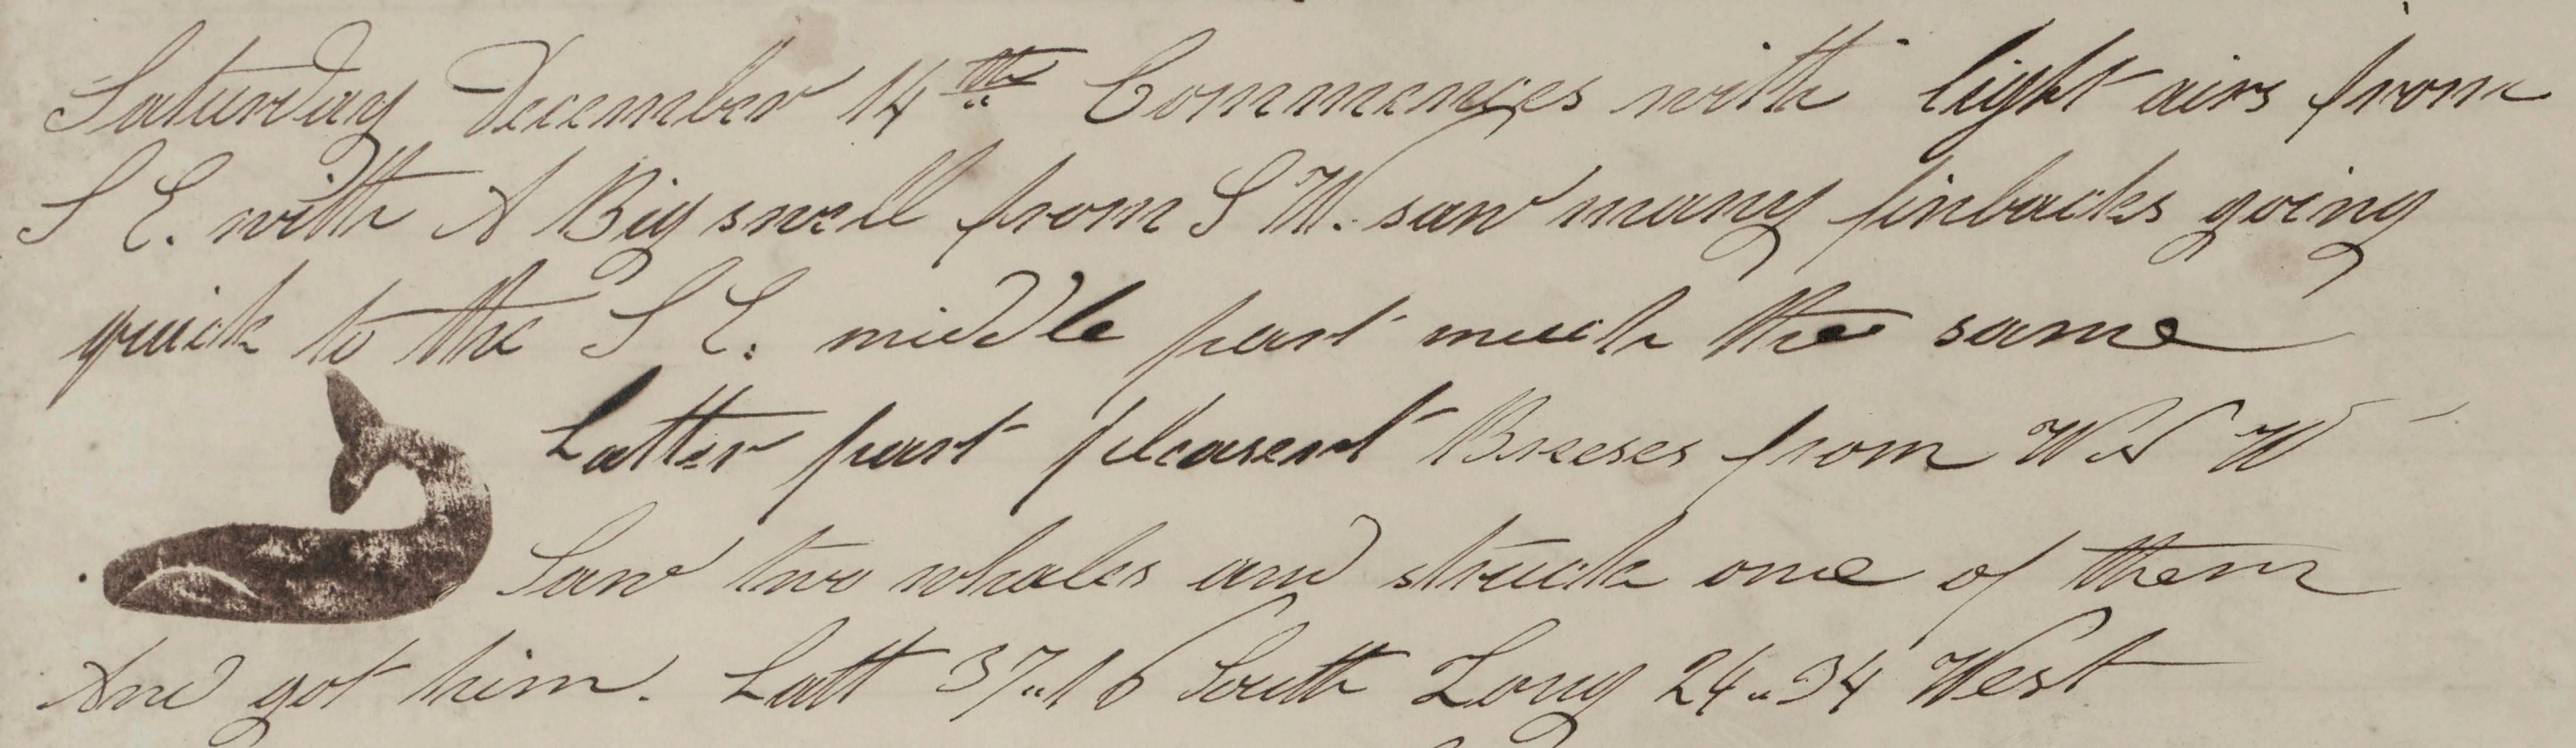 Saturday December 14th Commences with light airs from
S E. with A Big swell from S W. saw many finbacks going
quick to the S E. middle part much the same
Latter part pleasent Breeses from W N W
Saw two whales and struck one of them
And got him. Latt 37..16 South Long 24..34 West